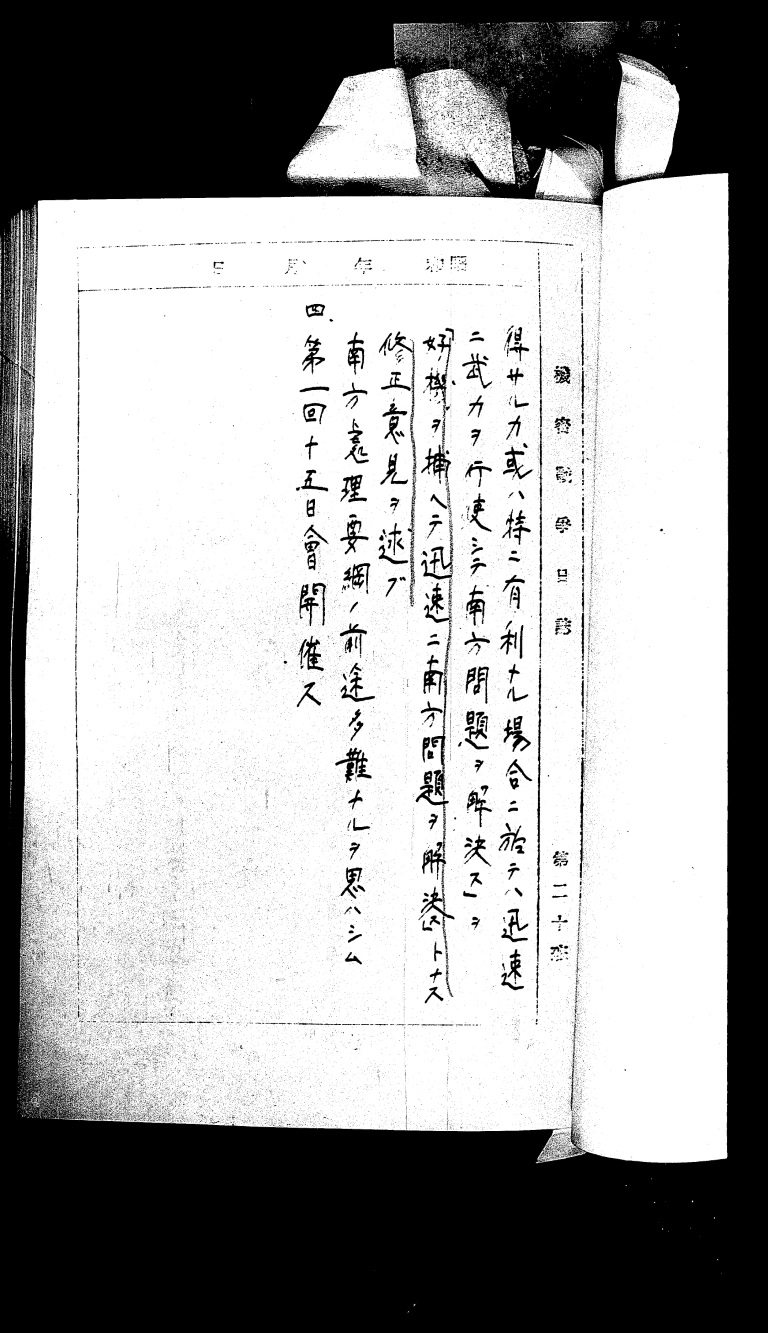 機密戰爭日誌
第二十班
昭和 年 月 日
得サルカ或ハ特ニ有利ナル場合ニ於テハ迅速
ニ武力ヲ行使シテ南方問題ヲ解決ス」ヲ
「好機ヲ捕ヘテ迅速ニ南方問題ヲ解決ス」トナス
修正意見ヲ述ブ
南方處理要綱ノ前途多難ナルヲ思ハシム
四、第一回十五日會開催ス